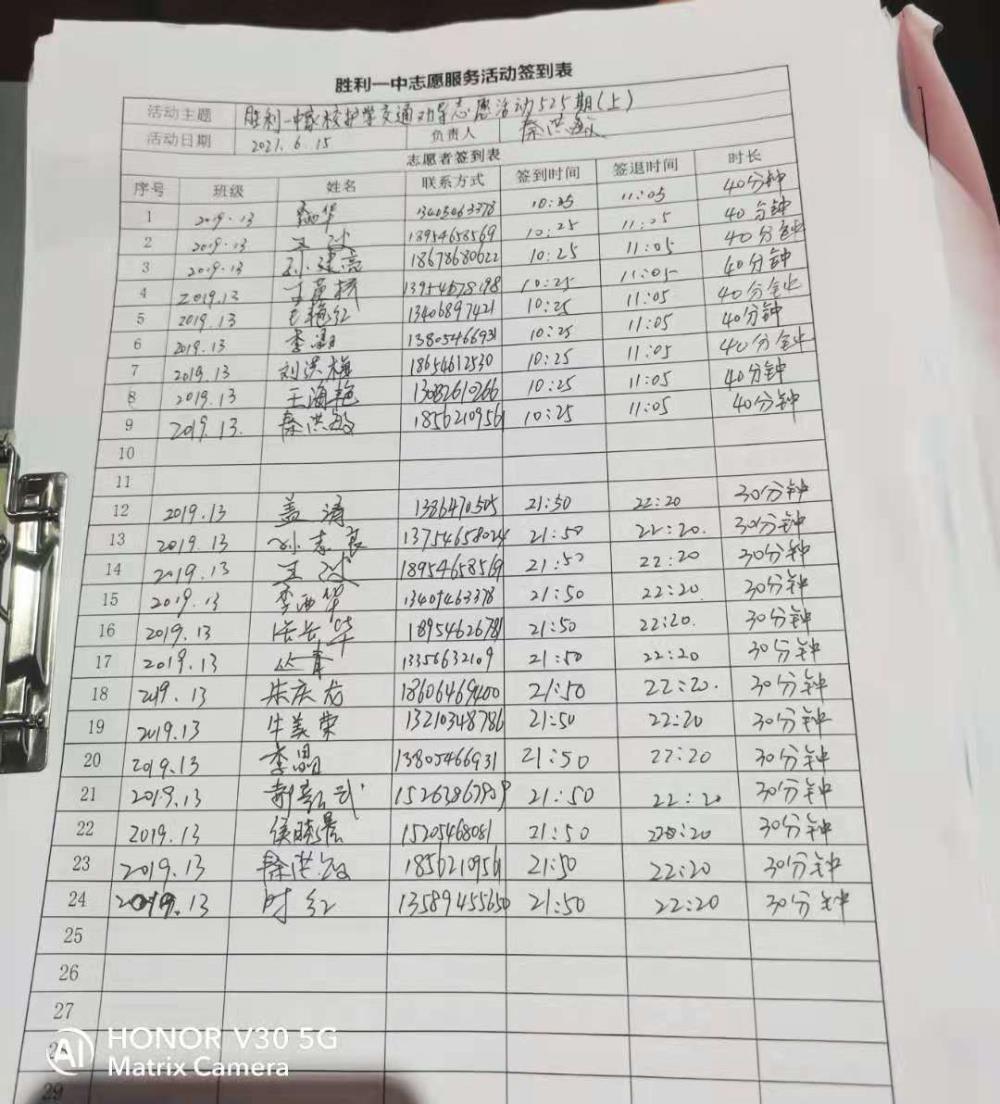 胜利一中志愿服务活动签到表
活动主题 胜利一中家校护学交通劝导志愿活动525期(上)
活动日期 2021.6.15 负责人 秦洪敏
志愿者签到表
序号 班级 姓名 联系方式 签到时间 签退时间 时长
1 2019.13 13405463378 10:25 11:05 40分钟
2 2019.13 王波 18954658569 10:25 11:05 40分钟
3 2019.13 孙建亮 18678680622 10:25 11:05 40分钟
4 2019.13 13954678198 10:25 11:05 40分钟
5 2019.13 13406897421 10:25 11:05 40分钟
6 2019.13 李晶 13805466931 10:25 11:05 40分钟
7 2019.13 刘洪梅 18654612530 10:25 11:05 40分钟
8 2019.13 王海艳 13082610266 10:25 11:05 40分钟
9 2019.13. 秦洪敏 1856210956 10:25 11:05 40分钟
10
11
12 2019.13 盖涛 1386470505 21:50 22:20 30分钟
13 2019.13 孙志良 13754658024 21:50 22:20. 30分钟
14 2019.13 王波 18954658569 21:50 22:20 30分钟
15 2019.13 李西华 13405463378 21:50 22:20 30分钟
16 2019.13 1895462678 21:50 22:20. 30分钟
17 2019.13 丛青 13356632109 21:50 22:20 30分钟
18 2019.13 朱庆启 18606469400 21:50 22:20. 30分钟
19 2019.13 牛美荣 13210348786 21:50 22:20 30分钟
20 2019.13 李晶 13805466931 21:50 22:20 30分钟
21 2019.13 15263867909 21:50 22:20 30分钟
22 2019.13 侯晓景 15205468081 21:50 22:20 30分钟
23 2019.13 秦洪敏 1856210956 21:50 22:20 30分钟
24 2019.13 时红 13589455650 21:50 22:20 30分钟
25
26
27
28
29
AI HONOR V30 5G
Matrix Camera